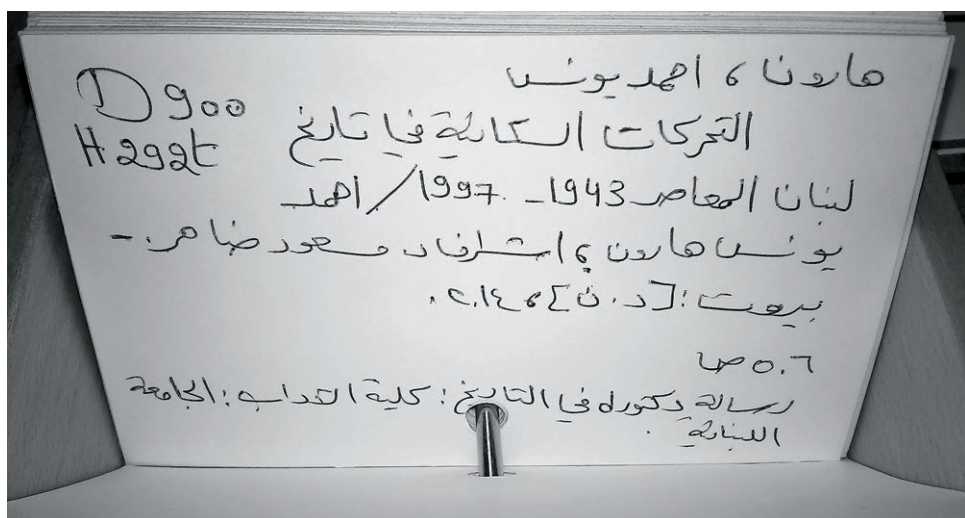 هارون، احمد يونس
D 900
H 292t
التحركات السكانية في تاريخ
لبنان المعاصر 1943 - 1997 / احمد
يونس هارون ؛ اشراف مسعود ضاهر . -
بيروت : [د . ن] ، ٢٠١٤ .
٥٠٦ ص
رسالة دكتوراه في التاريخ : كلية الآداب : الجامعة
اللبنانية .